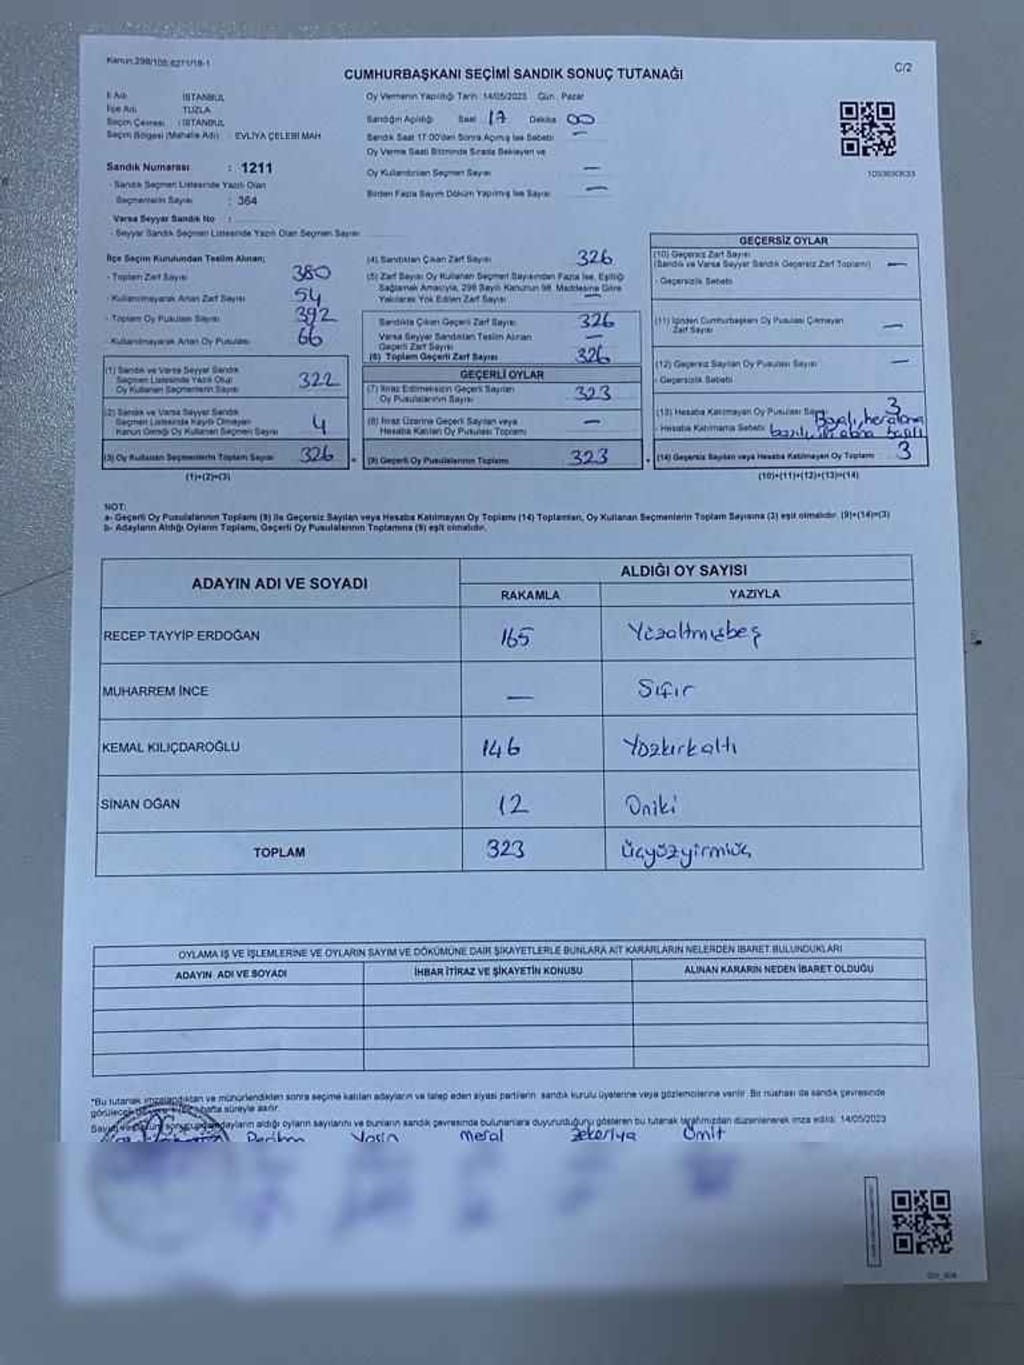 Kanun:298/105;6271/18-1
CUMHURBAŞKANI SEÇİMİ SANDIK SONUÇ TUTANAĞI
C/2
İl Adı : İSTANBUL
İlçe Adı TUZLA
Seçim Çevresi : İSTANBUL
Seçim Bölgesi (Mahalle Adı) : EVLİYA ÇELEBİ MAH
Sandık Numarası : 1211
- Sandık Seçmen Listesinde Yazılı Olan
Seçmenlerin Sayısı : 364
Varsa Seyyar Sandık No :
- Seyyar Sandık Seçmen Listesinde Yazılı Olan Seçmen Sayısı
Oy Vermenin Yapıldığı Tarih: 14/05/2023 Gün : Pazar
Sandığın Açıldığı Saat 17 Dakika 00
Sandık Saat 17:00'den Sonra Açılmış İse Sebebi —
Oy Verme Saati Bitiminde Sırada Bekleyen ve
Oy Kullandırılan Seçmen Sayısı —
Birden Fazla Sayım Döküm Yapılmış İse Sayısı —
İlçe Seçim Kurulundan Teslim Alınan;
- Toplam Zarf Sayısı 380
- Kullanılmayarak Artan Zarf Sayısı 54
- Toplam Oy Pusulası Sayısı 392
- Kullanılmayarak Artan Oy Pusulası 66
(1) Sandık ve Varsa Seyyar Sandık
Seçmen Listesinde Yazılı Olup
Oy Kullanan Seçmenlerin Sayısı 322
(2) Sandık ve Varsa Seyyar Sandık
Seçmen Listesinde Kayıtlı Olmayan
Kanun Gereği Oy Kullanan Seçmen Sayısı 4
(3) Oy Kullanan Seçmenlerin Toplam Sayısı 326
(1)+(2)=(3)
(4) Sandıktan Çıkan Zarf Sayısı 326
(5) Zarf Sayısı Oy Kullanan Seçmen Sayısından Fazla İse, Eşitliği
Sağlamak Amacıyla, 298 Sayılı Kanunun 98. Maddesine Göre
Yakılarak Yok Edilen Zarf Sayısı —
Sandıkta Çıkan Geçerli Zarf Sayısı 326
Varsa Seyyar Sandıktan Teslim Alınan
Geçerli Zarf Sayısı —
(6) Toplam Geçerli Zarf Sayısı 326
GEÇERLİ OYLAR
(7) İtiraz Edilmeksizin Geçerli Sayılan
Oy Pusulalarının Sayısı 323
(8) İtiraz Üzerine Geçerli Sayılan veya
Hesaba Katılan Oy Pusulası Toplamı —
(9) Geçerli Oy Pusulalarının Toplamı 323
GEÇERSİZ OYLAR
(10) Geçersiz Zarf Sayısı
(Sandık ve Varsa Seyyar Sandık Geçersiz Zarf Toplamı) —
- Geçersizlik Sebebi
(11) İçinden Cumhurbaşkanı Oy Pusulası Çıkmayan
Zarf Sayısı —
(12) Geçersiz Sayılan Oy Pusulası Sayısı —
- Geçersizlik Sebebi
(13) Hesaba Katılmayan Oy Pusulası Sayısı 3
- Hesaba Katılmama Sebebi
(14) Geçersiz Sayılan veya Hesaba Katılmayan Oy Toplamı 3
(10)+(11)+(12)+(13)=(14)
NOT:
a- Geçerli Oy Pusulalarının Toplamı (9) ile Geçersiz Sayılan veya Hesaba Katılmayan Oy Toplamı (14) Toplamları, Oy Kullanan Seçmenlerin Toplam Sayısına (3) eşit olmalıdır. (9)+(14)=(3)
b- Adayların Aldığı Oyların Toplamı, Geçerli Oy Pusulalarının Toplamına (9) eşit olmalıdır.
ADAYIN ADI VE SOYADI
ALDIĞI OY SAYISI
RAKAMLA YAZIYLA
RECEP TAYYİP ERDOĞAN 165 Yüzaltmışbeş
MUHARREM İNCE — Sıfır
KEMAL KILIÇDAROĞLU 146 Yüzkırkaltı
SİNAN OĞAN 12 Oniki
TOPLAM 323 Üçyüzyirmiüç
OYLAMA İŞ VE İŞLEMLERİNE VE OYLARIN SAYIM VE DÖKÜMÜNE DAİR ŞİKAYETLERLE BUNLARA AİT KARARLARIN NELERDEN İBARET BULUNDUKLARI
ADAYIN ADI VE SOYADI İHBAR İTİRAZ VE ŞİKAYETİN KONUSU ALINAN KARARIN NEDEN İBARET OLDUĞU
*Bu tutanak imzalandıktan ve mühürlendikten sonra seçime katılan adayların ve talep eden siyasi partilerin sandık kurulu üyelerine veya gözlemcilerine verilir. Bir nüshası da sandık çevresinde
görülecek hafta süreyle asılır.
adayların aldığı oyların sayılarını ve bunların sandık çevresinde bulunanlara duyurulduğunu gösteren bu tutanak tarafımızdan düzenlenerek imza edildi. 14/05/2023
Perihan Yasin Meral Zekeriya Ümit